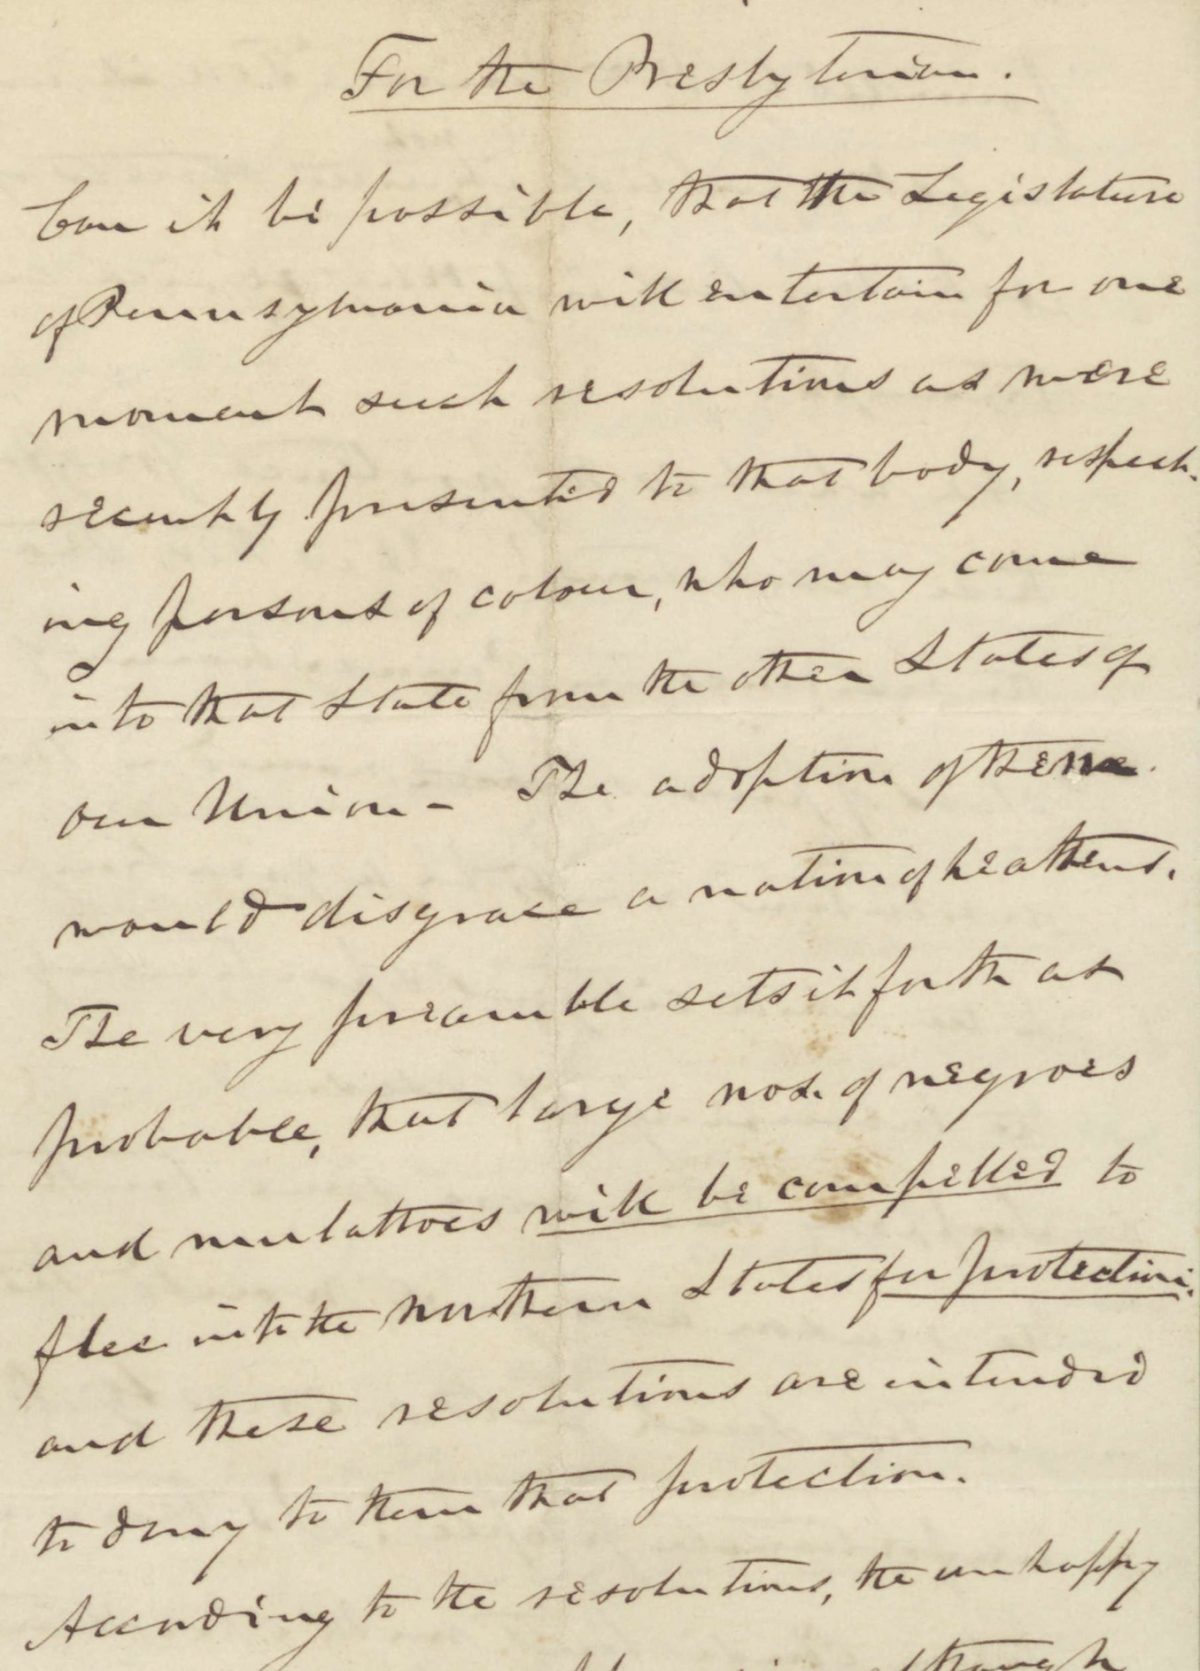 For the Presbyterian.
Can it be possible, that the Legislature
of Pennsylvania will entertain for one
moment such resolutions as were
recently presented to that body, respect-
ing persons of colour, who may come
into that State from the other States of
our Union - The adoption of them
would disgrace a nation of heathens.
The very preamble sets it forth as
probable, that large nos. of negroes
and mulattoes will be compelled to
flee into the northern States for protection;
and these resolutions are intended
to deny to them that protection.
According to the resolutions, the unhappy
though